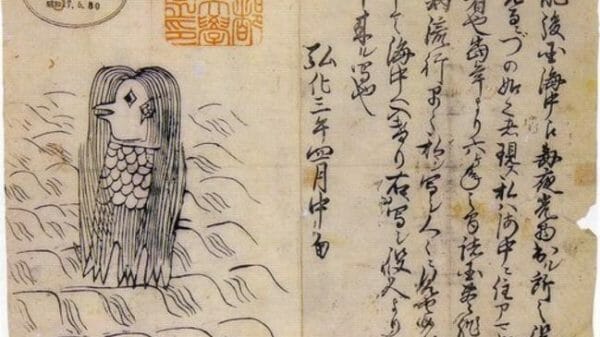 肥後国海中江毎夜光物出ル所之役
見るニづの如く者現ス私ハ海中ニ住ア
者也当年より六ヶ年之間諸国豊作
病流行早々私写シ人々ニ見セ候
申て海中へ入けり右写シ役人より
申来ル写也
弘化三年四月中旬